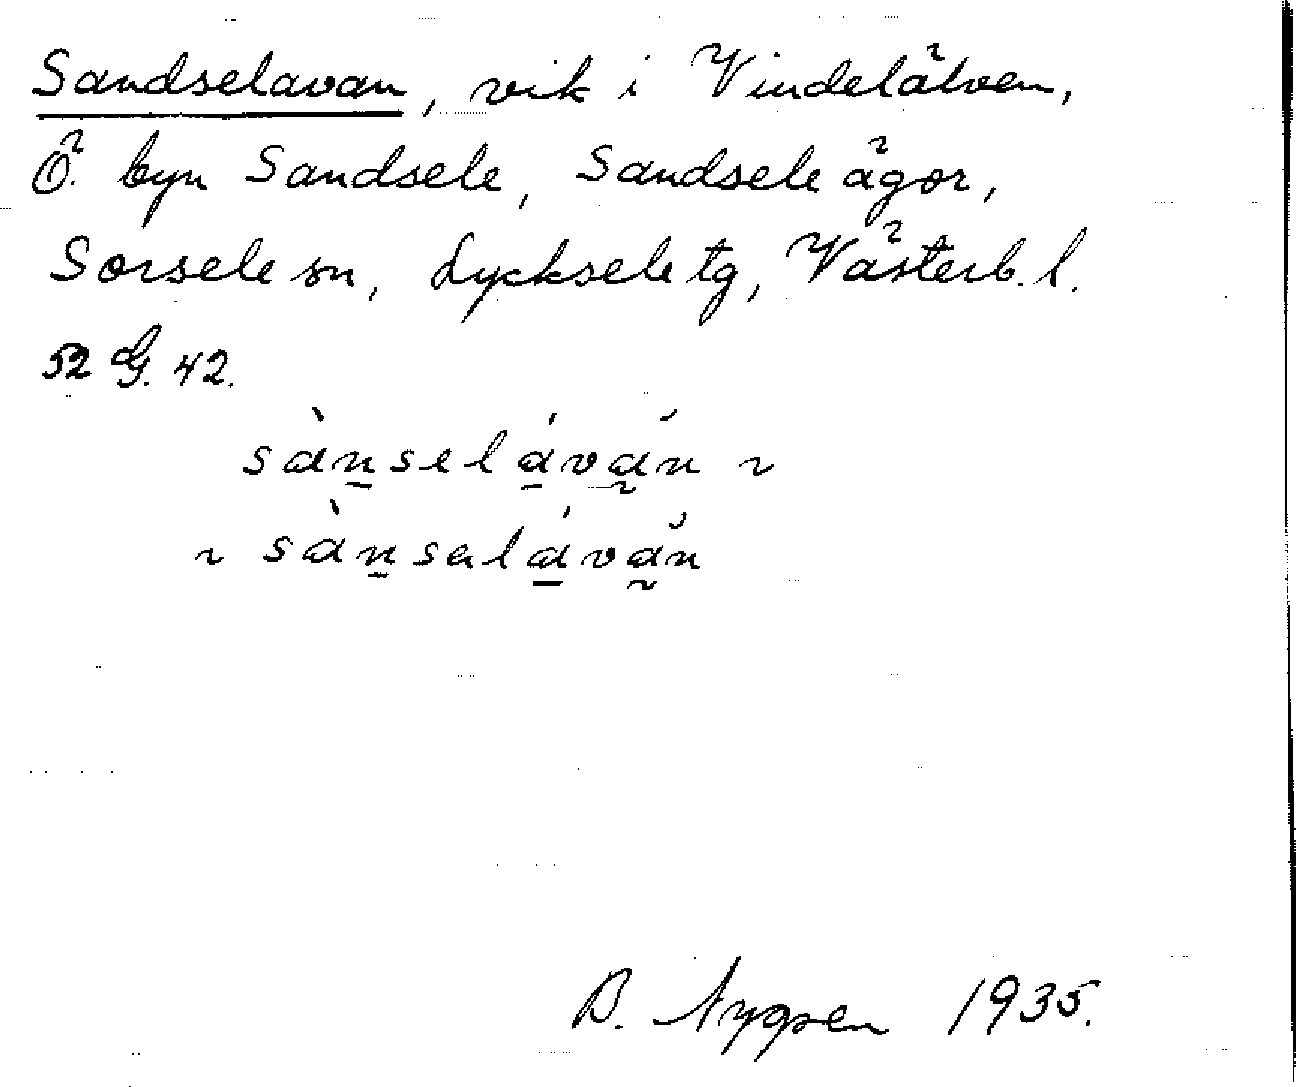 Sandselavan, vik i Vindelälven,
Ö. byn Sandsele, Sandsele ägor,
Sorsele sn, Lycksele tg, Västerb. l.
52 G. 42.
sànseláván ~
~ sànsəláván
B. Nygren 1935.